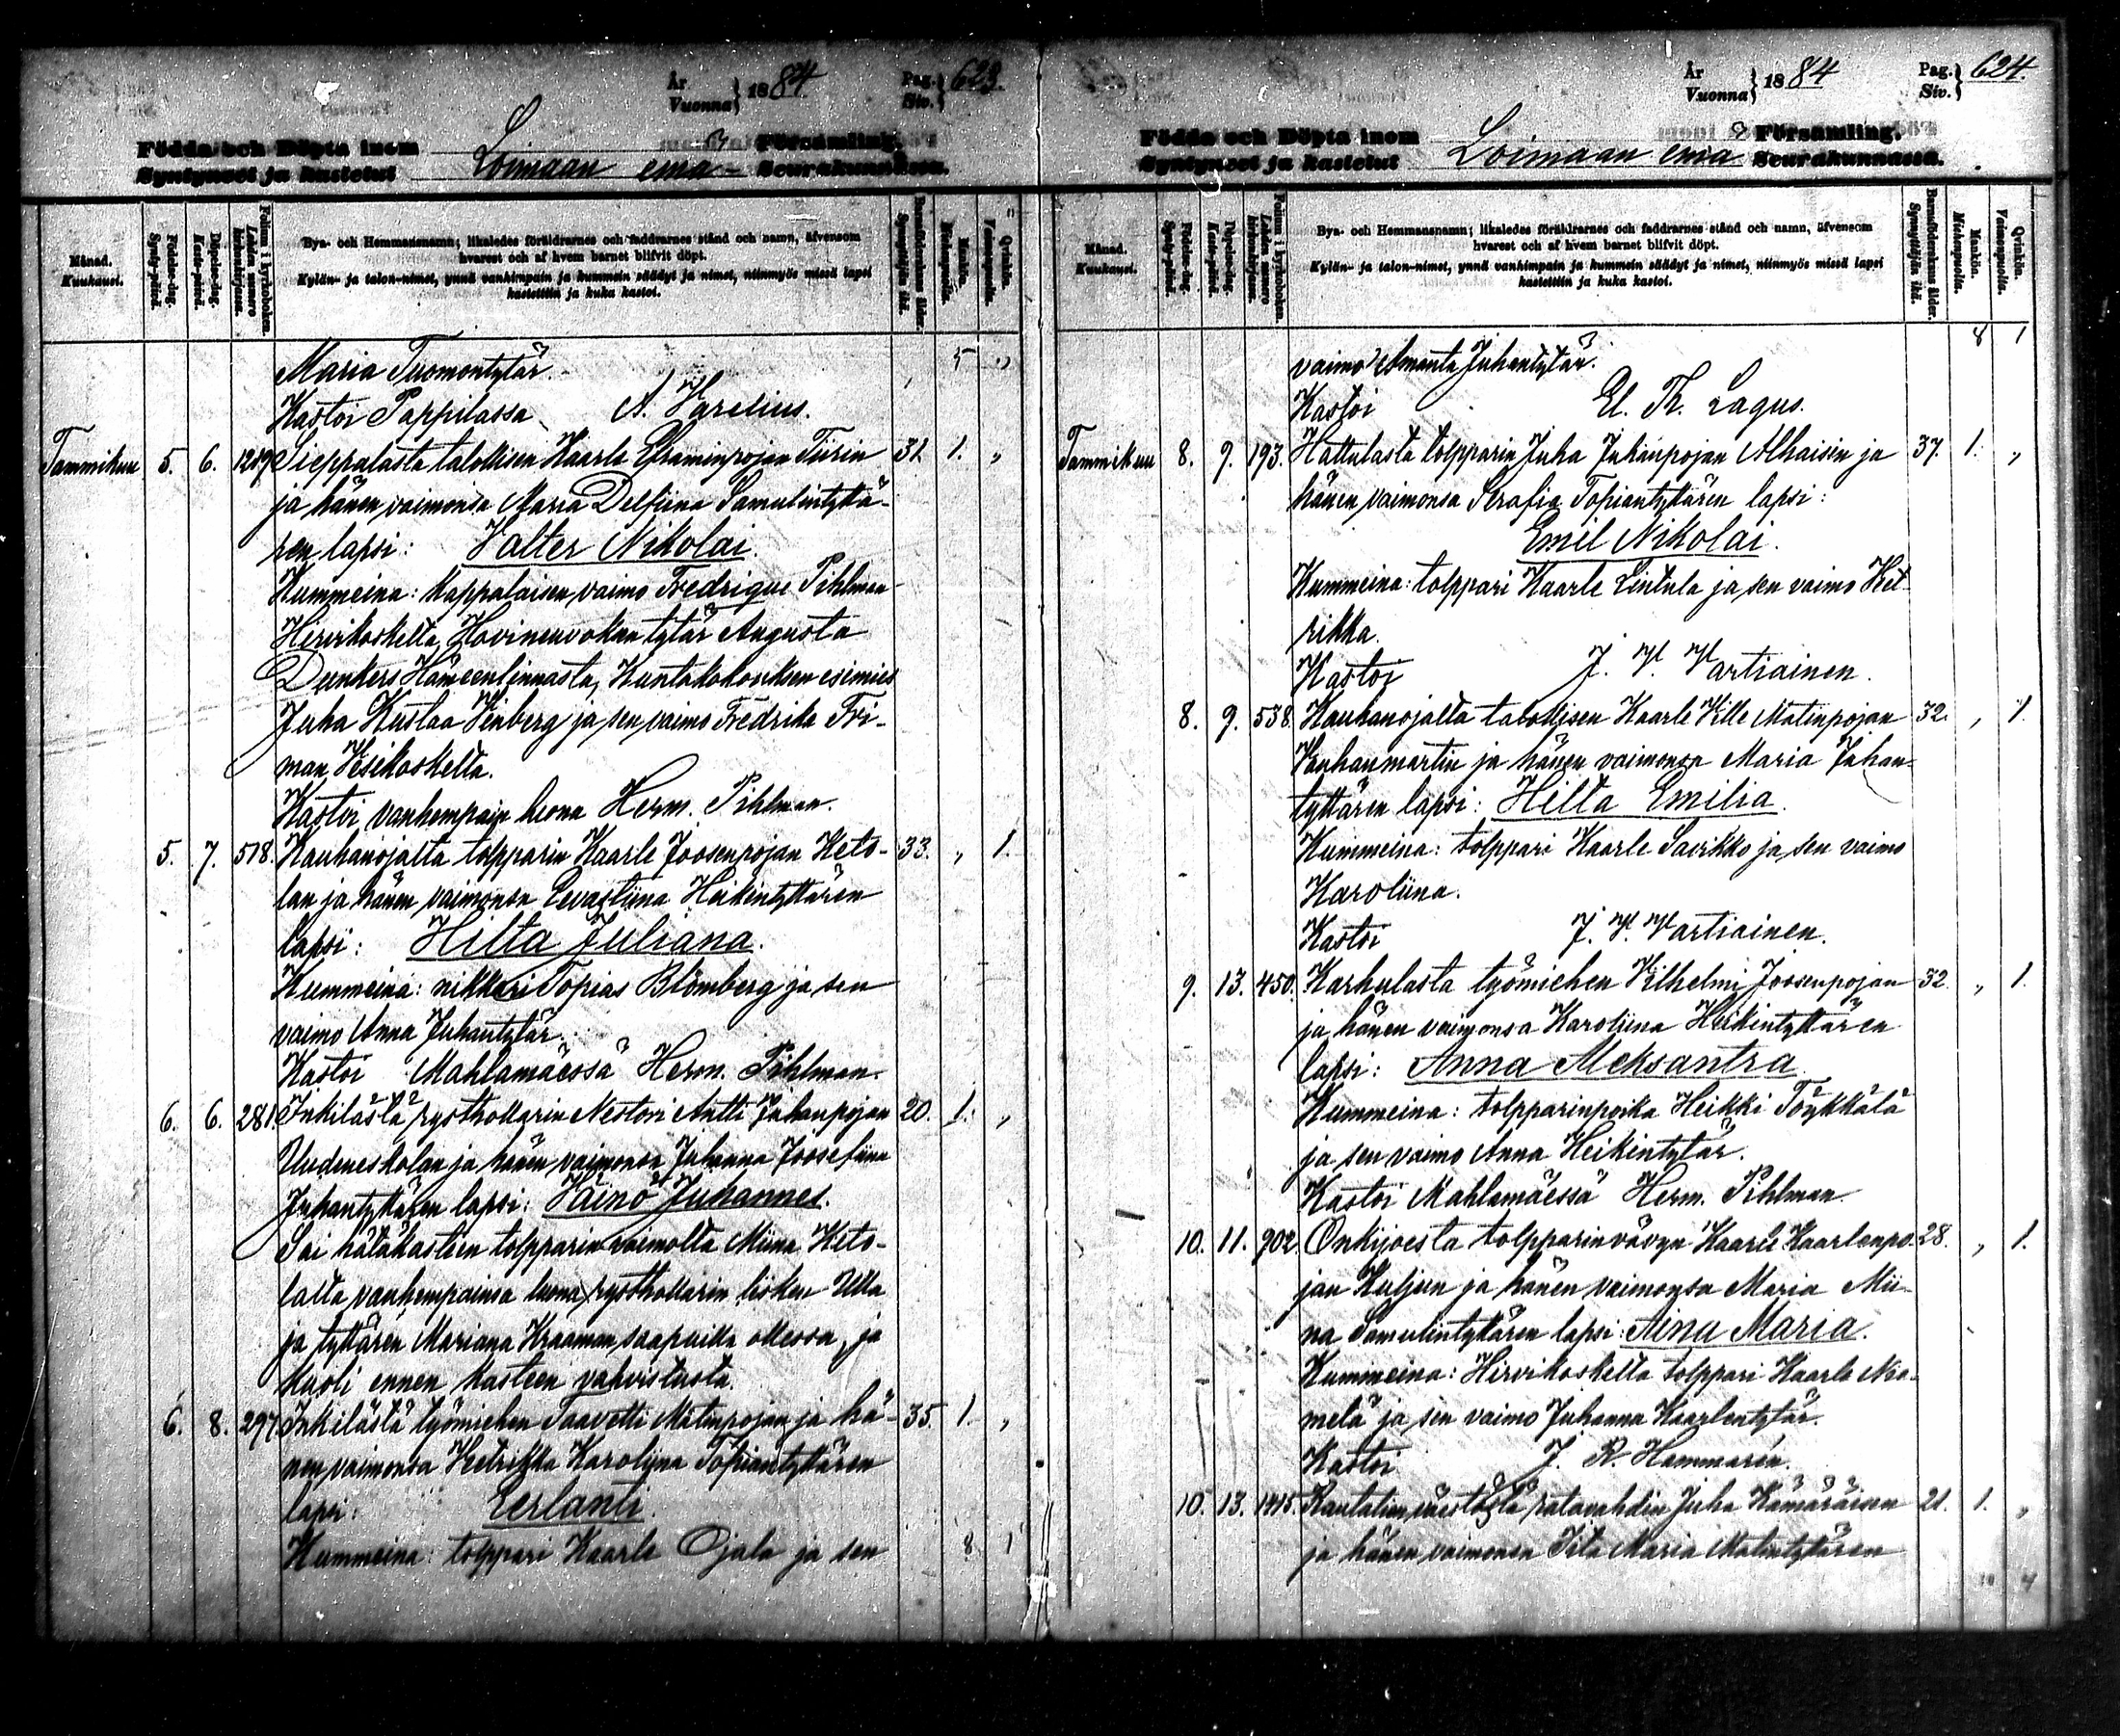 År
Vuonna } 1884.
Pag.
Siv. } 623.
Födda och Döpta inom
Syntyneet ja kastetut
Loimaan emä-
Församling.
Seurakunnassa.
Månad.
Kuukausi.
Födelse-dag.
Synty-päivä.
Döpelse-dag.
Kaste-päivä.
Folium i kyrkoboken.
Lehden numero kirkonkirjassa.
Bya- och Hemmansnamn; likaledes föräldrarnes och faddrarnes stånd och namn, äfvensom
hvarest och af hvem barnet blifvit döpt.
Kylän- ja talon-nimet, ynnä vanhimpain ja kummein säädyt ja nimet, niinmyös missä lapsi
kastettiin ja kuka kastoi.
Barnaföderskans ålder.
Synnyttäjän ikä.
Mankön.
Miehenpuolia.
Qvinkön.
Vaimonpuolia.
Maria Tuomontytär. 5 "
Kastoi Pappilassa A. Varelius.
Tammikuu 5. 6. 1219 Sieppalasta talollisen Kaarle Efraiminpojan Tiirin 31. 1. "
ja hänen vaimonsa Maria Delfiina Samulintyttä-
ren lapsi: Valter Nikolai.
Kummeina: kappalaisen vaimo Fredrique Pihlman
Hirvikoskelta, Hovineuvokan tytär Augusta
Dunkers Hämeenlinnasta, Kuntakokouksen esimies
Juha Kustaa Vinberg ja sen vaimo Fredrika Fri-
man Vesikoskelta.
Kastoi vanhempain luona Herm. Pihlman.
5. 7. 518. Kauhanojalta tolpparin Kaarle Joosenpojan Keto- 33. " 1.
lan ja hänen vaimonsa Eevastiina Heikintyttären
lapsi: Hilta Juliana.
Kummeina: nikkari Topias Blomberg ja sen
vaimo Anna Juhantytär.
Kastoi Mahlamäessä Herm. Pihlman.
6. 6. 281. Inkilästä rysthollarin Nestori Antti Juhanpojan 20. 1. "
Uudeneskolan ja hänen vaimonsa Juhanna Joosefiina
Juhantyttären lapsi: Väinö Juhannes.
Sai hätäkasteen tolpparin vaimolta Miina Keto-
lalta vanhempainsa luona rysthollarin lesken Ulla
ja tyttären Mariana Kraaman saapuilla ollessa, ja
kuoli ennen kasteen vahvistusta.
6. 8. 297. Inkilästä työmiehen Taavetti Matinpojan ja hä- 35. 1. "
nen vaimonsa Hetrikka Karoliina Topiantyttären
lapsi: Eerlanti.
Kummeina: tolppari Kaarle Ojala ja sen
8 1
År
Vuonna } 1884
Pag.
Siv. } 624.
Födda och Döpta inom
Syntyneet ja kastetut
Loimaan emä
Församling.
Seurakunnassa.
Månad.
Kuukausi.
Födelse-dag.
Synty-päivä.
Döpelse-dag.
Kaste-päivä.
Folium i kyrkoboken.
Lehden numero kirkonkirjassa.
Bya- och Hemmansnamn; likaledes föräldrarnes och faddrarnes stånd och namn, äfvensom
hvarest och af hvem barnet blifvit döpt.
Kylän- ja talon-nimet, ynnä vanhimpain ja kummein säädyt ja nimet, niinmyös missä lapsi
kastettiin ja kuka kastoi.
Barnaföderskans ålder.
Synnyttäjän ikä.
Mankön.
Miehenpuolia.
Qvinkön.
Vaimonpuolia.
8 1
vaimo Amanta Juhantytär.
Kastoi El. Th. Lagus.
Tammikuu 8. 9. 193. Hattulasta tolpparin Juha Juhanpojan Alhaisin ja 37. 1. "
hänen vaimonsa Serafia Topiantyttären lapsi:
Emil Nikolai.
Kummeina: tolppari Kaarle Lintula ja sen vaimo Het-
rikka.
Kastoi J. V. Vartiainen.
8. 9. 538. Kauhanojalta talollisen Kaarle Ville Matinpojan 32. " 1.
Vanhanmartin ja hänen vaimonsa Maria Juhan-
tyttären lapsi: Hilta Emilia.
Kummeina: tolppari Kaarle Savikko ja sen vaimo
Karoliina.
Kastoi J. V. Vartiainen.
9. 13. 450. Karhulasta työmiehen Vilhelmi Joosenpojan 32. " 1.
ja hänen vaimonsa Karoliina Heikintyttären
lapsi: Anna Aleksantra.
Kummeina: tolpparinpoika Heikki Töykkälä
ja sen vaimo Anna Heikintytär.
Kastoi Mahlamäessä Herm. Pihlman.
10. 11. 902. Onkijoesta tolpparinvävyn Kaarle Kaarlenpo- 28. " 1.
jan Kuljun ja hänen vaimonsa Maria Mii-
na Samulintyttären lapsi: Aina Maria.
Kummeina: Hirvikoskelta tolppari Kaarle Nie-
melä ja sen vaimo Juhanna Kaarlentytär.
Kastoi J. R. Hammarén.
10. 13. 1415. Rautatien väestöstä ratavahdin Juha Kämäräisen 21. 1. "
ja hänen vaimonsa Iita Maria Matintyttären
10 4